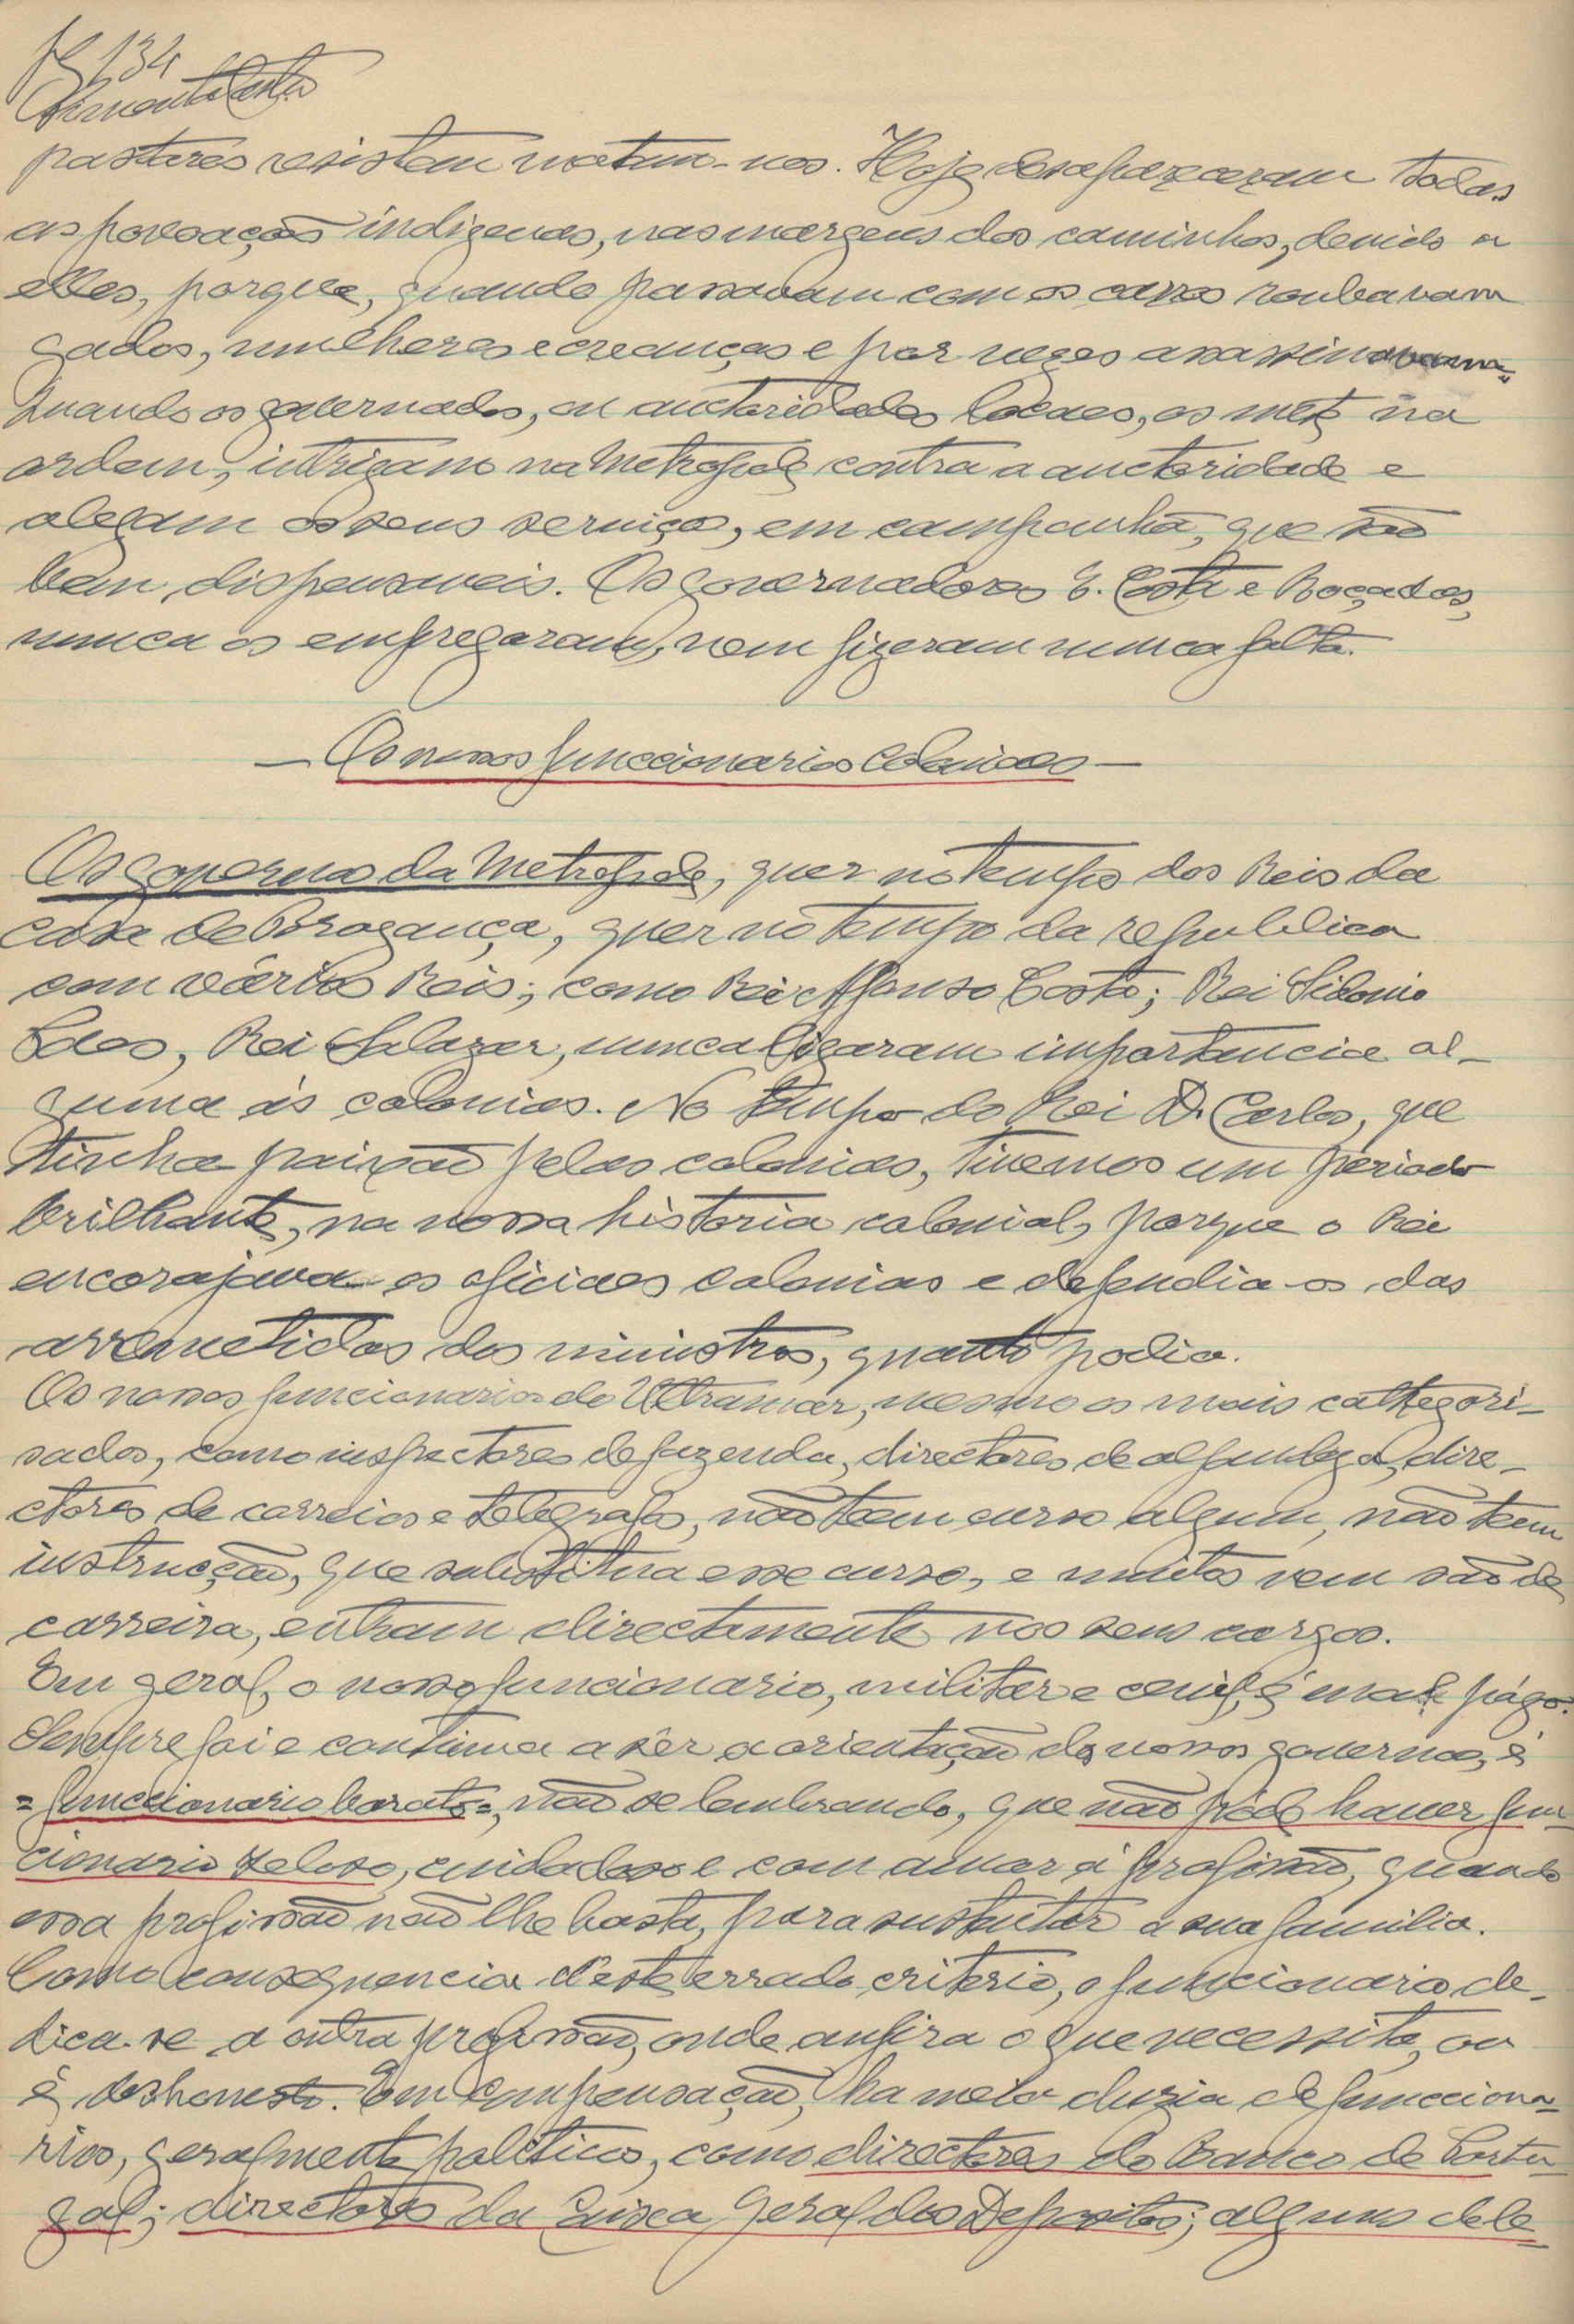 134
pastores resistem matam-nos. Hoje desapareceram todas
as povoações indigenas, nas margens dos caminhos, devido a
elles, porque, quando passavam com os carros roubavam
gados, mulheres e creanças e por vezes assassinavam.
Quando os governados, ou auctoridades locaes, os mete na
ordem, intrigam na Metropole contra a auctoridade e
alegam os seus serviços, em campanha, que são
bem dispensaveis. Os governadores E. Costa e Roçadas,
nunca os empregaram, nem fizeram nunca falta.
— Os nossos funccionarios coloniaes —
Os governos da Metropole, quer no tempo dos Reis da
casa de Bragança, quer no tempo da republica
com vários Reis; como Rei Affonso Costa; Rei Sidonio
Paes, Rei Salazar, nunca ligaram importancia al-
guma ás colonias. No tempo do Rei D. Carlos, que
tinha paixão pelas colonias, tivemos um periodo
brilhante, na nossa historia colonial, porque o Rei
encorajava os oficiaes coloniaes e defendia-os das
arremetidas dos ministros, quanto podia.
Os nossos funcionarios do Ultramar, mesmo os mais cathegori-
sados, como inspectores de fazenda, directores de alfandega, dire-
ctores de correios e telegrafos, não teem curso algum, não teem
instrucção, que substitua esse curso, e muitos nem são de
carreira, entram directamente nos seus cargos.
Em geral, o nosso funcionario, militar e civil, é mal págo.
Sempre foi e continua a sêr a orientação dos nossos governos, é
=funccionario barato=, não se lembrando, que não póde haver fun-
cionario zeloso, cuidadoso e com amor á profissão, quando
essa profissão não lhe basta, para sustentar a sua familia.
Como consequencia d'este errado criterio, o funcionario de-
dica-se a outra profissão, onde aufira o que necessita, ou
é deshonesto. Em compensação, ha meia duzia de funcciona-
rios, geralmente politicos, como directores do Banco de Portu-
gal; directores da Caixa Geral dos Depositos; alguns dele-